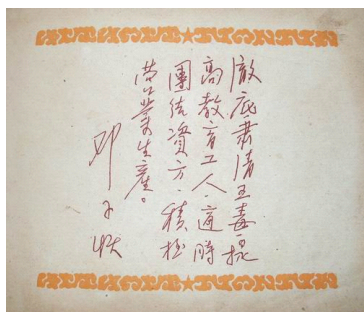 徹底肅清五毒，提
高教育工人，適時
團結資方，積極
營業生產。
邓子恢